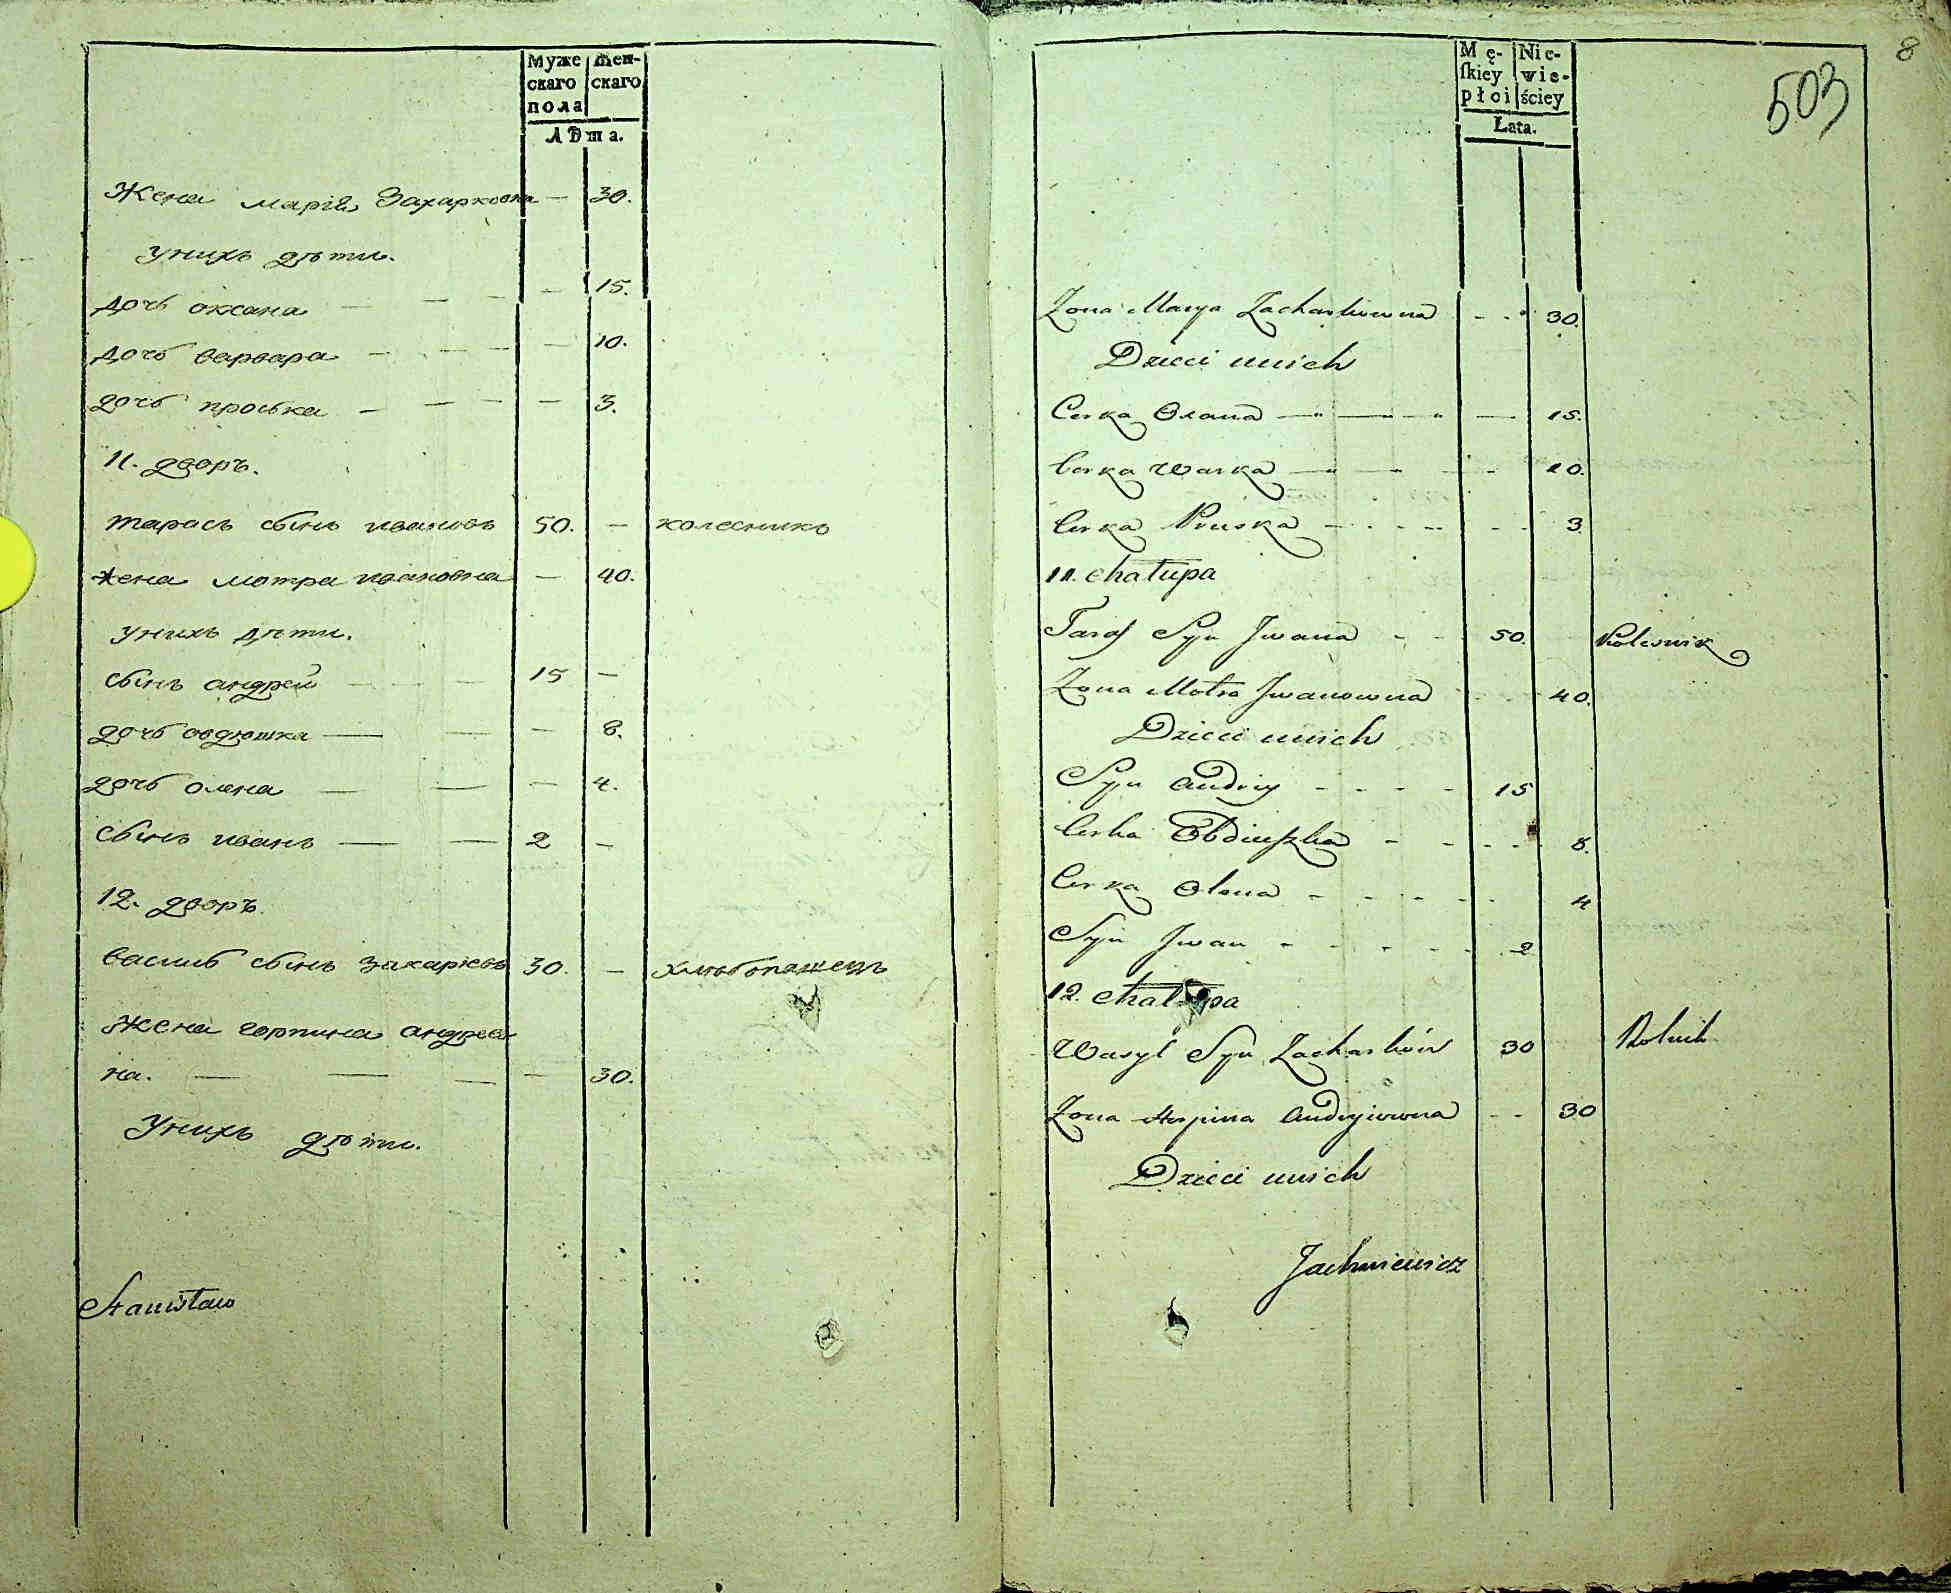 Муже Жен-
скаго скаго
пола
Лѣта.
Жена марія Захарковна — 30.
унихъ дѣти.
дочь оксана — — — — 15.
дочь варвара — — — — 10.
дочь проська — — — — 3.
11. дворъ.
тарасъ сынъ ивановъ 50. — колесникъ
жена мотра ивановна — 40.
унихъ дѣти.
сынъ андрей — — 15 —
дочь овдюшка — — — 8.
дочь олена — — — 4.
сынъ иванъ — — 2 —
12. дворъ.
василь сынъ захаріевъ 30. — хлѣбопашецъ
жена горпина андреев
на. — — — — 30.
Унихъ дѣти.
Stanisław
8
503
Mę- Nie-
skiey wie-
płci ściey
Lata.
Zona Marya Zacharkowna - - 30.
Dzieci unich
Corka Oxana — — — — 15.
Corka Warka — — - - 10.
Corka Pruska - - - - - 3
11. chałupa
Taras Syn Iwana - - 50. Kolesnik
Zona Motra Iwanowna - - 40.
Dzieci unich
Syn Andriy - - - - 15
Corka Obdiuszka - - - - 8.
Corka Olena - - - - - 4
Syn Iwan - - - - - 2
12. chałupa
Wasyl Syn Zacharków 30 Rolnik
Zona Horpina Andryiowna - - 30
Dzieci unich
Jachniewicz